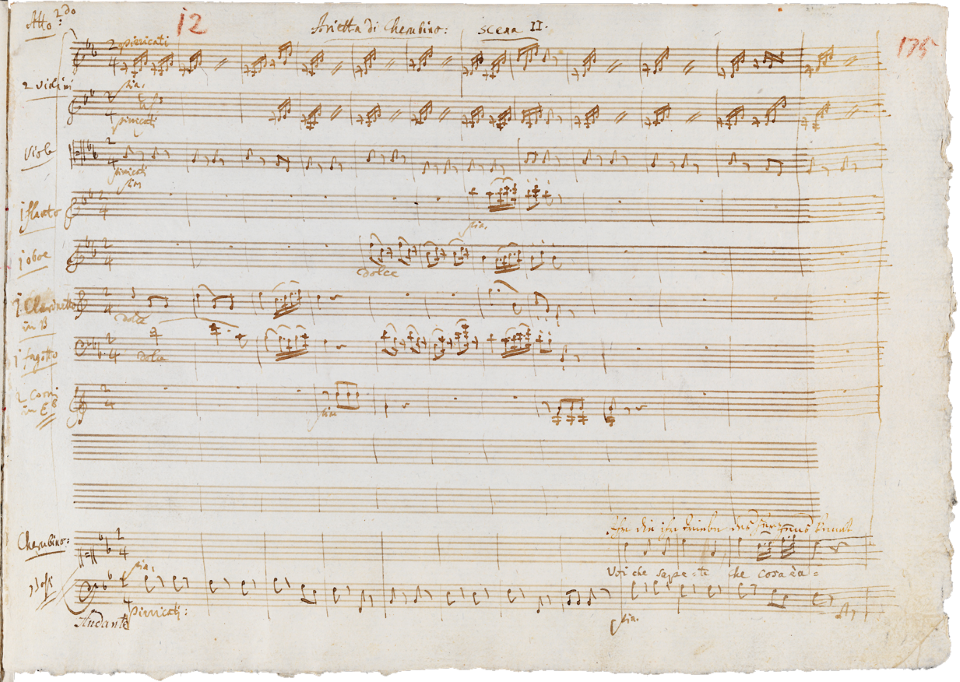 Atto 2do
12
Arietta di Cherubino: Scena II:
175
pizzicati
2 violini
pia:
pizzicati
Viole
pizzicati
pia
1 flauto
pia:
1 oboe
dolce
1 Clarinetto
in B
dolce
1 fagotto
dolce
2 Corni
in E
pia
Cherubino:
Voi che sapete che cosa è a=
pia:
Bassi
pizzicati:
pia:
Andante